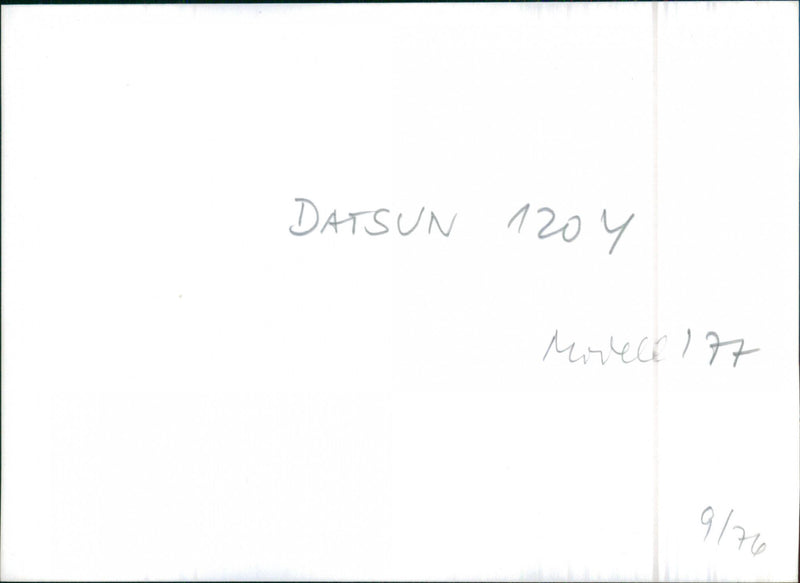 DATSUN 120Y
Modell '77
9/76